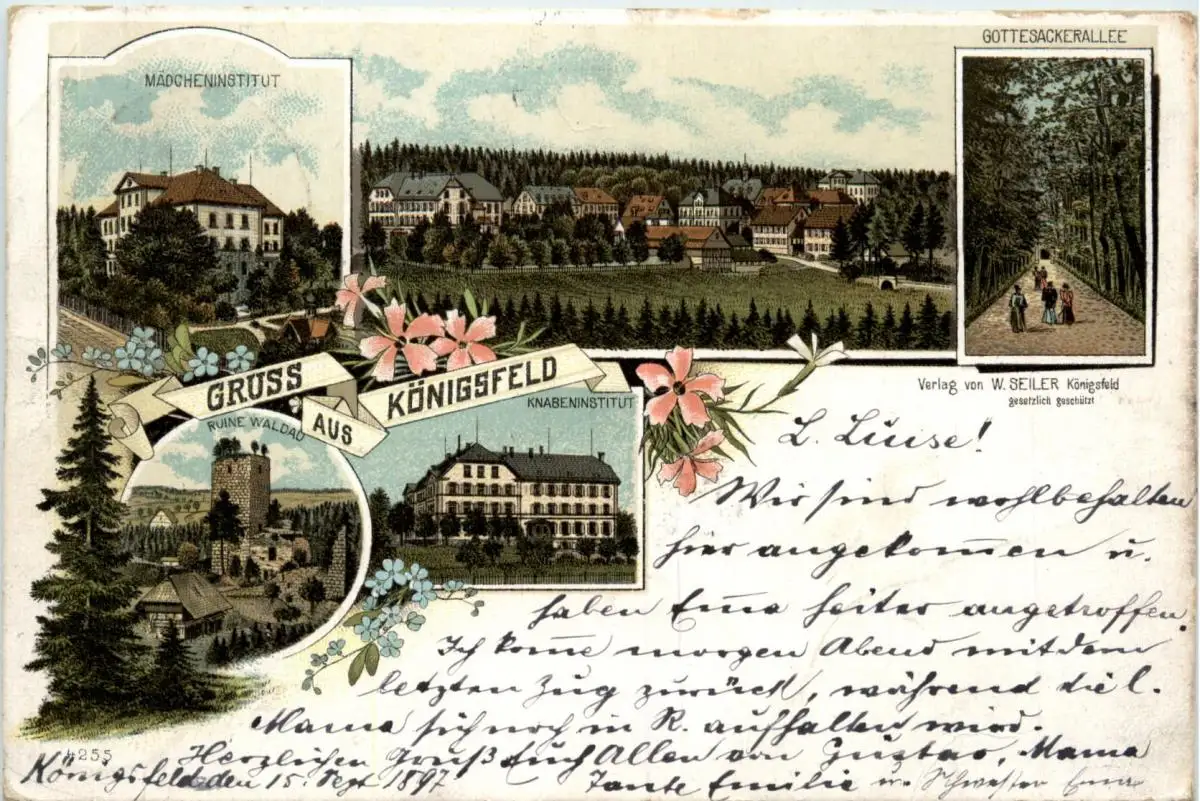 MÄDCHENINSTITUT
GOTTESACKERALLEE
GRUSS
AUS
KÖNIGSFELD
RUINE WALDAU
KNABENINSTITUT
Verlag von W. SEILER Königsfeld
gesetzlich geschützt
L. Luise!
Wir sind wohlbehalten
hier angekom̅en u.
haben Em̅a heiter angetroffen.
Ich kom̅e morgen Abend mit dem
letzten Zug zurück, während die l.
Mama sich noch in R. aufhalten wird.
Herzlichen Gruß Euch Allen von Gustav, Mama
Tante Emilie u. Schwester Em̅a
4255
Königsfeld den 15. Sept 1897